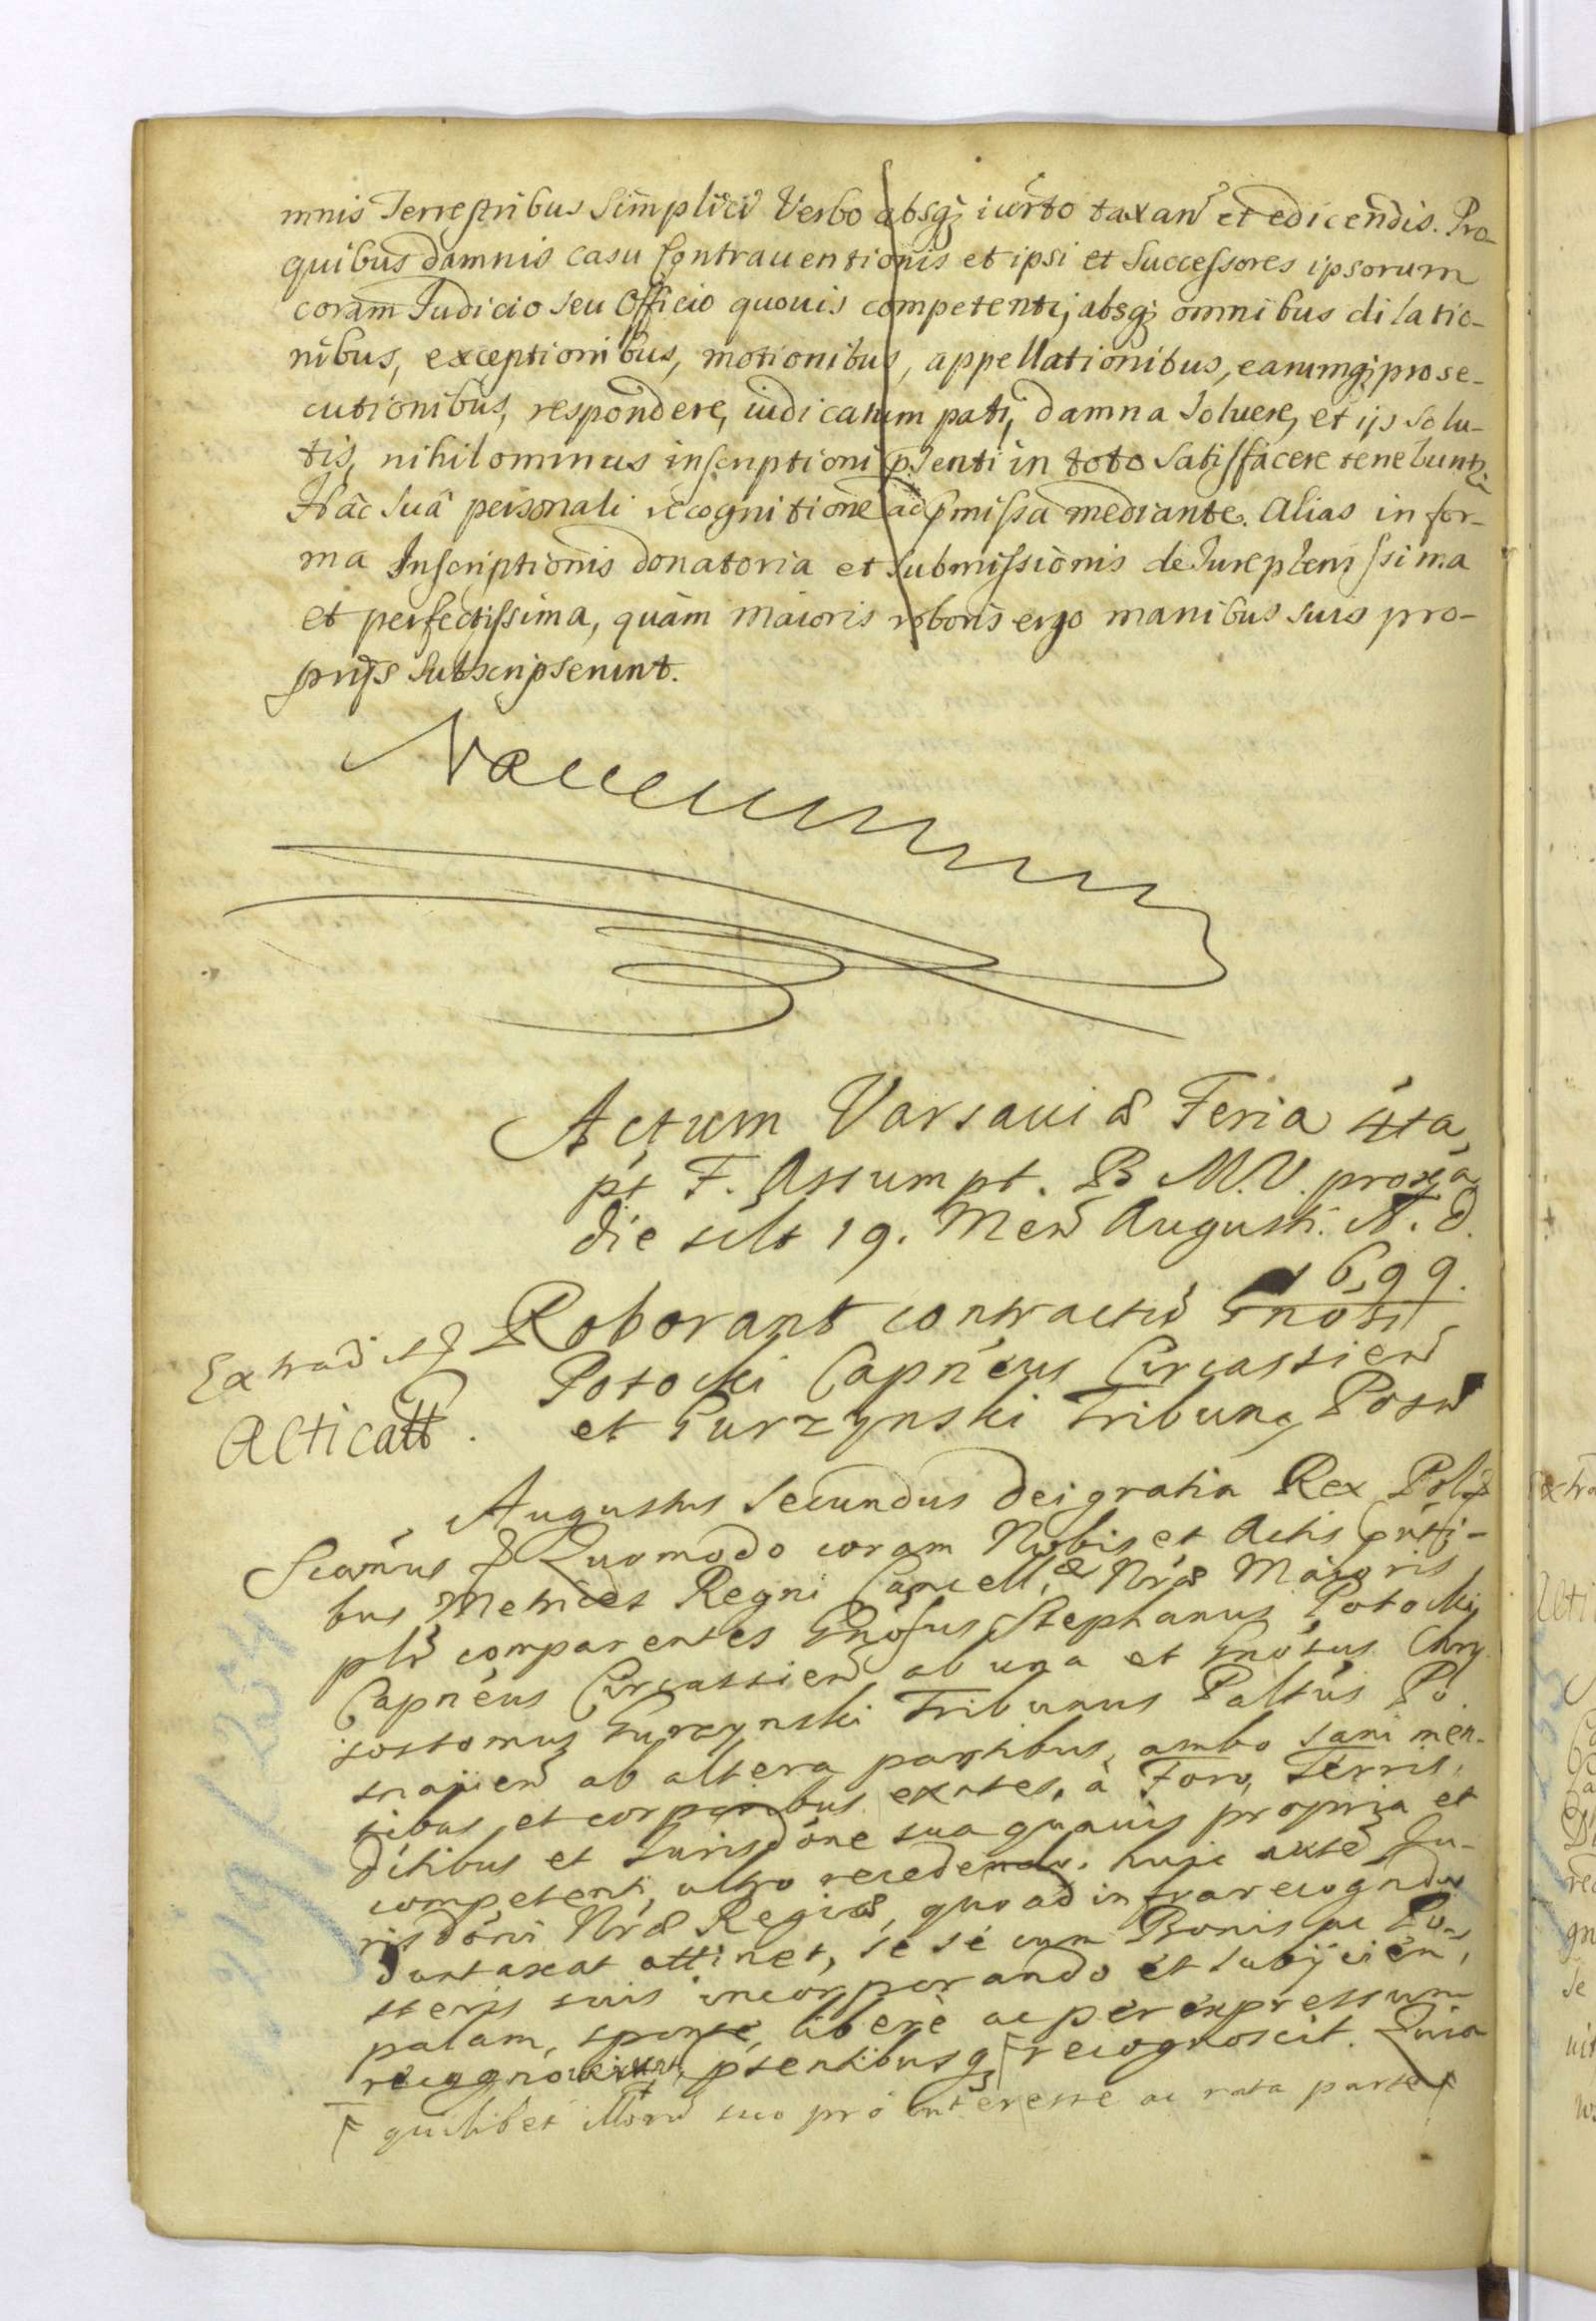 mnis Terrestribus Simplici Verbo absq; iurto taxan et edicendis. Pro-
quibus damnis casu Contrauentionis et ipsi et Successores ipsorum
coram Judicio seu Officio quouis competenti, absq; omnibus dilatio-
nibus, exceptionibus, motionibus, appellationibus, earumq; prose-
cutionibus, respondere, iudicatum pati, damna Soluere, et ijs Solu-
tis, nihilominus inscriptioni psenti in toto Satisfacere tenebunt
Hâc Suâ personali recognitione ad pmissa mediante. Alias in for-
ma Inscriptionis donatoria et Submissionis de Jure plenissima
et perfectissima, quàm maioris roboris ergo manibus suis pro-
prijs Subscripserunt.
Actum Varsauiæ Feria 4ta
pt F. Assumpt. B M.V. proxa
die silt 19. Men Augusti A. D.
1699.
Roborant contractu Gnosi
Potocki Capneus Circassien
et Gurzynski Tribung Posn
Extradit
Acticatt.
Augustus Secundus Dei gratia Rex Pol
Scamus Quomodo coram Nobis et Actis pnti-
bus Metrices Regni Cancell, æ Nræ Maioris
plr comparentes Gnosus Stephanus Potocki
Capneus Circassien ab una et Gnosus Chry
sostomus Gurzynski Tribunus Paltus Po
snanien ab altera partibus, ambo sani men-
tibus et corporibus exntes, à Foro, Terris,
Ditibus et Jurisdone sua quauis propria et
competenti, ultro recedendo. huic Ju-
risdoni Nræ Regiæ, quo ad infrarecognda
duntaxat attinet, se se cum Bonis ac Po-
steris suis incorporando et subijcien,
palam, sponte, liberè ac per expressum
recognouerunt, psentibusq; recognoscit. Quia
quilibet illoru suo pro interesse ac rata parte